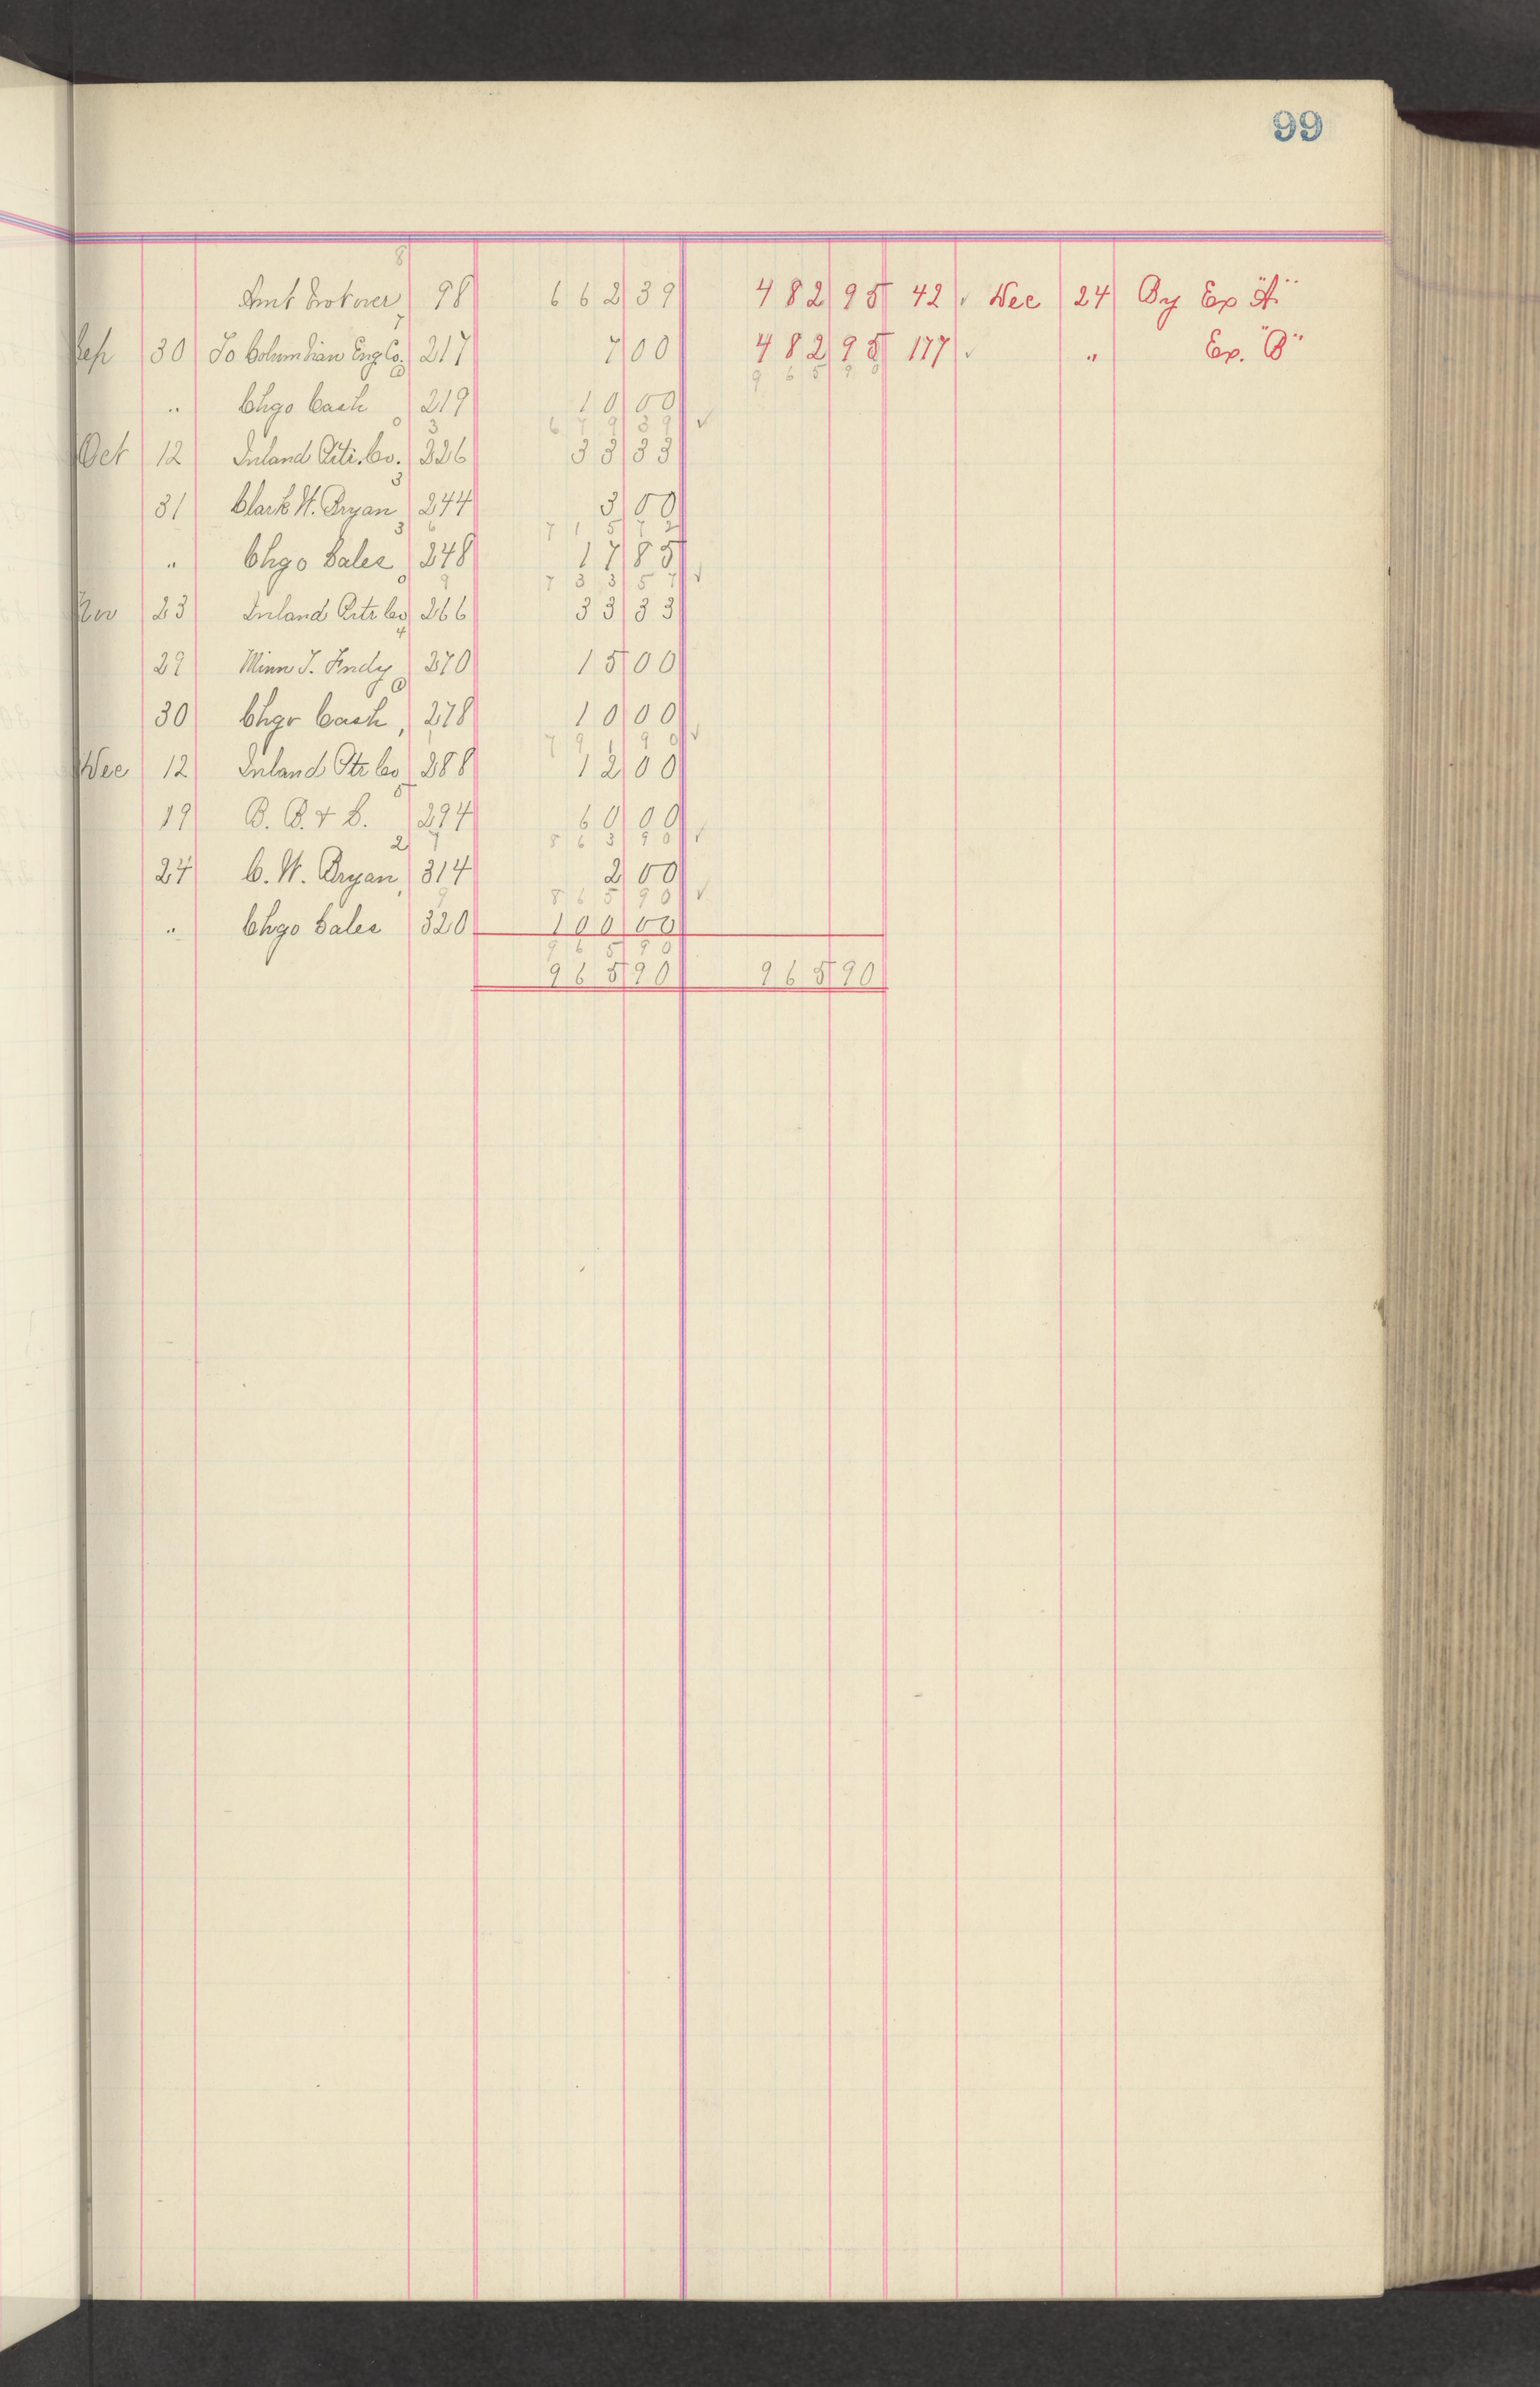 99
8
Amt Brot over 98 662 39 482 95 42 ✓ Dec 24 By Ex "A"
7
Sep 30 To Columbian Eng Co. 217 7 00 482 95 177 ✓ " Ex. "B"
965 90
" Chgo Cash 219 10 00
679 39 ✓
Oct 12 Inland Ptr. Co. 226 33 33
31 Clark W. Bryan 244 3 00
715 72
" Chgo Sales 248 17 85
733 57 ✓
Nov 23 Inland Ptr Co 266 33 33
29 Minn T. Fndy 270 15 00
30 Chgo Cash 278 10 00
791 90 ✓
Dec 12 Inland Ptr Co 288 12 00
19 B. B. & S. 294 60 00
863 90 ✓
24 C. W. Bryan 314 2 00
865 90 ✓
" Chgo Sales 320 100 00
965 90
965 90 965 90